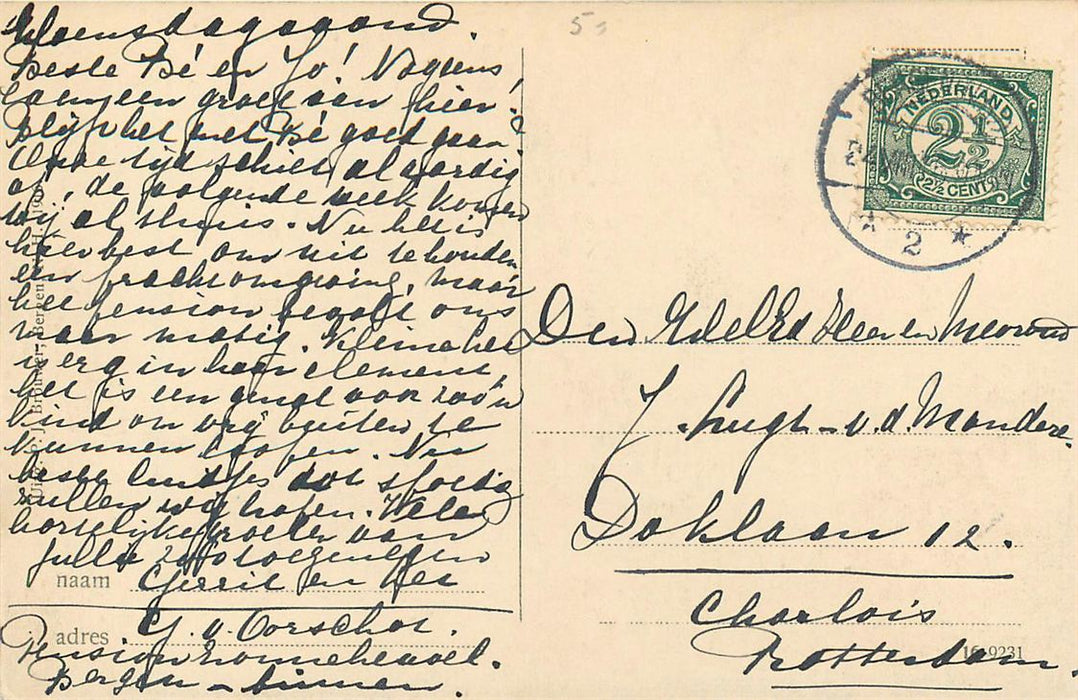 Woensdagavond.
Beste Bé en Jo! Nog eens
een groet van hier.
Blijft het met Bé goed gaan?
Onze tijd schiet al aardig
op, de volgende week komen
wij al thuis. Nu het is
hier best om uit te houden
een prachtomgeving, maar
het pension bevalt ons
maar matig. Kleine Lies
is erg in haar element,
het is een genot voor zoo'n
kind om vrij buiten te
kunnen loopen. Nu
beste luitjes tot spoedig
zullen wij hopen. Vele
hartelijke groeten van
jullie zoo toegenegen
naam Gerrit en
adres G. v. Oorschot.
Pension Zonneheuvel.
Bergen-binnen.
Uitg. Brouwer, Bergen N.H. 1909
5
NEDERLAND
2½
2½ CENT
2 *
Den EdelEd Heer en Mevrouw
J. Lugt-v.d. Mandere.
Doklaan 12.
Charlois
Rotterdam.
9231